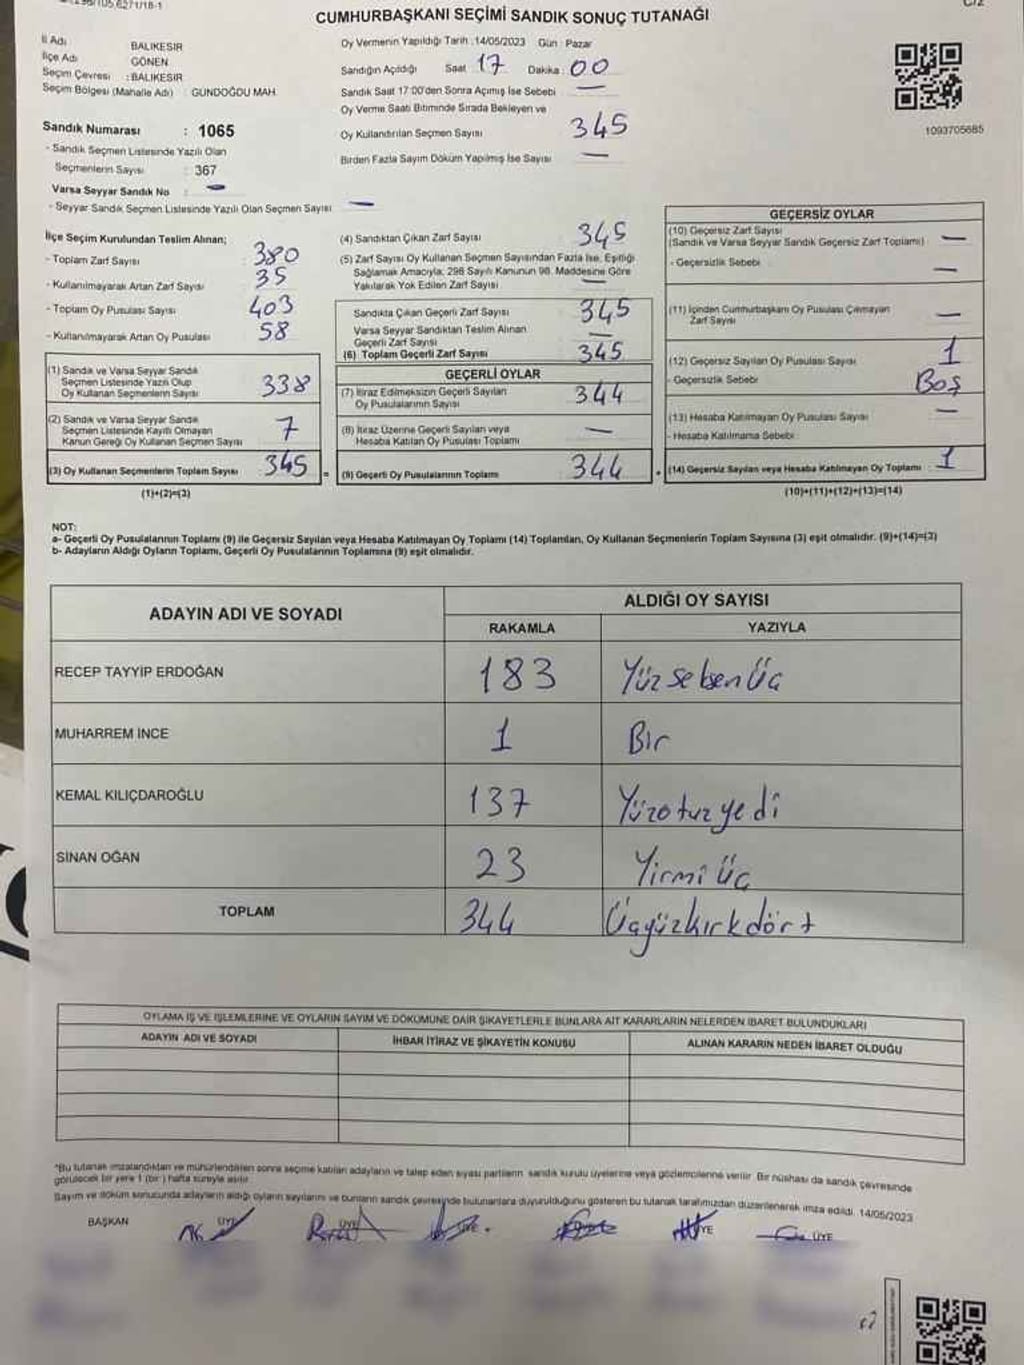 CUMHURBAŞKANI SEÇİMİ SANDIK SONUÇ TUTANAĞI
C/2
İl Adı BALIKESİR
İlçe Adı GÖNEN
Seçim Çevresi : BALIKESİR
Seçim Bölgesi (Mahalle Adı) : GÜNDOĞDU MAH.
Sandık Numarası : 1065
- Sandık Seçmen Listesinde Yazılı Olan
Seçmenlerin Sayısı : 367
Varsa Seyyar Sandık No : —
- Seyyar Sandık Seçmen Listesinde Yazılı Olan Seçmen Sayısı —
Oy Vermenin Yapıldığı Tarih : 14/05/2023 Gün : Pazar
Sandığın Açıldığı Saat 17 Dakika : 00
Sandık Saat 17:00'den Sonra Açımış İse Sebebi —
Oy Verme Saati Bitiminde Sırada Bekleyen ve
Oy Kullandırılan Seçmen Sayısı 345
Birden Fazla Sayım Döküm Yapılmış İse Sayısı —
1093705685
İlçe Seçim Kurulundan Teslim Alınan;
- Toplam Zarf Sayısı 380
- Kullanılmayarak Artan Zarf Sayısı 35
- Toplam Oy Pusulası Sayısı 403
- Kullanılmayarak Artan Oy Pusulası 58
(1) Sandık ve Varsa Seyyar Sandık
Seçmen Listesinde Yazılı Olup
Oy Kullanan Seçmenlerin Sayısı 338
(2) Sandık ve Varsa Seyyar Sandık
Seçmen Listesinde Kayıtlı Olmayan
Kanun Gereği Oy Kullanan Seçmen Sayısı 7
(3) Oy Kullanan Seçmenlerin Toplam Sayısı 345 =
(1)+(2)=(3)
(4) Sandıktan Çıkan Zarf Sayısı 345
(5) Zarf Sayısı Oy Kullanan Seçmen Sayısından Fazla İse, Eşitliği
Sağlamak Amacıyla; 298 Sayılı Kanunun 98. Maddesine Göre
Yakılarak Yok Edilen Zarf Sayısı —
Sandıkta Çıkan Geçerli Zarf Sayısı 345
Varsa Seyyar Sandıktan Teslim Alınan
Geçerli Zarf Sayısı —
(6) Toplam Geçerli Zarf Sayısı 345
GEÇERLİ OYLAR
(7) İtiraz Edilmeksizin Geçerli Sayılan
Oy Pusulalarının Sayısı 344
(8) İtiraz Üzerine Geçerli Sayılan veya
Hesaba Katılan Oy Pusulası Toplamı —
(9) Geçerli Oy Pusulalarının Toplamı 344 +
GEÇERSİZ OYLAR
(10) Geçersiz Zarf Sayısı
(Sandık ve Varsa Seyyar Sandık Geçersiz Zarf Toplamı) —
- Geçersizlik Sebebi —
(11) İçinden Cumhurbaşkanı Oy Pusulası Çıkmayan
Zarf Sayısı —
(12) Geçersiz Sayılan Oy Pusulası Sayısı 1
- Geçersizlik Sebebi Boş
(13) Hesaba Katılmayan Oy Pusulası Sayısı —
- Hesaba Katılmama Sebebi
(14) Geçersiz Sayılan veya Hesaba Katılmayan Oy Toplamı : 1
(10)+(11)+(12)+(13)=(14)
NOT:
a- Geçerli Oy Pusulalarının Toplamı (9) ile Geçersiz Sayılan veya Hesaba Katılmayan Oy Toplamı (14) Toplamları, Oy Kullanan Seçmenlerin Toplam Sayısına (3) eşit olmalıdır. (9)+(14)=(3)
b- Adayların Aldığı Oyların Toplamı, Geçerli Oy Pusulalarının Toplamına (9) eşit olmalıdır.
ADAYIN ADI VE SOYADI
ALDIĞI OY SAYISI
RAKAMLA YAZIYLA
RECEP TAYYİP ERDOĞAN 183 Yüz seben Üç
MUHARREM İNCE 1 Bir
KEMAL KILIÇDAROĞLU 137 Yüzotuzyedi
SİNAN OĞAN 23 Yirmi Üç
TOPLAM 344 Üçyüzkırkdört
OYLAMA İŞ VE İŞLEMLERİNE VE OYLARIN SAYIM VE DÖKÜMÜNE DAİR ŞİKAYETLERLE BUNLARA AİT KARARLARIN NELERDEN İBARET BULUNDUKLARI
ADAYIN ADI VE SOYADI İHBAR İTİRAZ VE ŞİKAYETİN KONUSU ALINAN KARARIN NEDEN İBARET OLDUĞU
*Bu tutanak imzalandıktan ve mühürlendikten sonra seçime katılan adayların ve talep eden siyasi partilerin sandık kurulu üyelerine veya gözlemcilerine verilir. Bir nüshası da sandık çevresinde
görülecek bir yere 1 (bir) hafta süreyle asılır.
Sayım ve döküm sonucunda adayların aldığı oyların sayılarını ve bunların sandık çevresinde bulunanlara duyurulduğunu gösteren bu tutanak tarafımızdan düzenlenerek imza edildi. 14/05/2023
BAŞKAN ÜYE ÜYE ÜYE ÜYE ÜYE